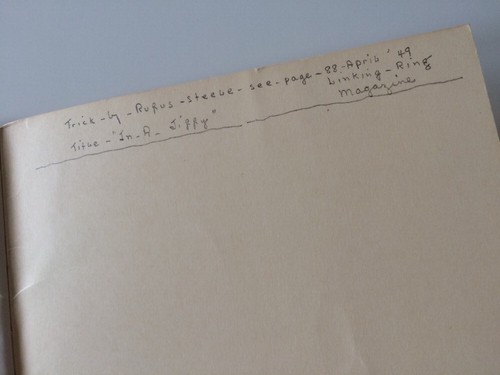 Trick-by-Rufus-Steele-see-page-88-April '49
Linking-Ring
Magazine
Title-"In-A-Jiffy"